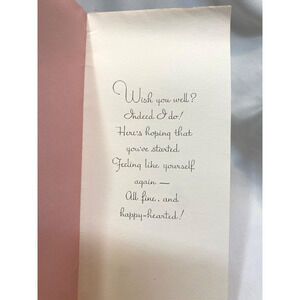 Wish you well?
Indeed I do!
Here's hoping that
you've started
Feeling like yourself
again —
All fine, and
happy-hearted!